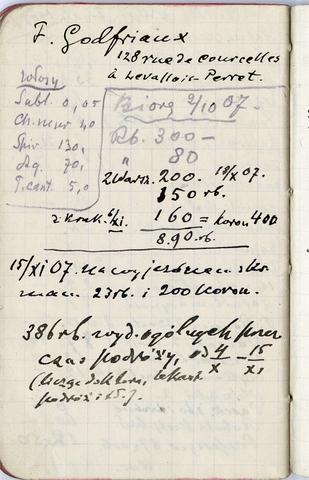 F. Godfriaux
128 rue de courcelles
à Levallois-Perret.
włosy
Subl. 0,05
Ch. mur 4,0
Spir 130,
Aq. 70,
T. cant. 5,0
Biorę 2/10 07.
Rb. 300 –
" 80
z Warsz. 200. 19/X 07.
150 rb.
z Krak. 6/xi. 160 = koron 400
890. rb.
15/XI 07. na wyjezdnem
mam 23 rb. i 200 koron.
386 rb. wyd. ogólnych przez
czas podróży, od 4/X – 15/XI
podróż i t.d.).